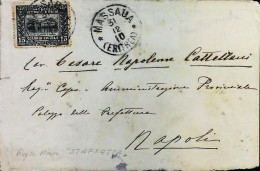 MASSAUA
31
12
10
(ERITREA)
15 15
Cav. Cesare Napoleone Cattellani
Rag. Capo - Amministrazione Provinciale
Palazzo della Prefettura
Napoli